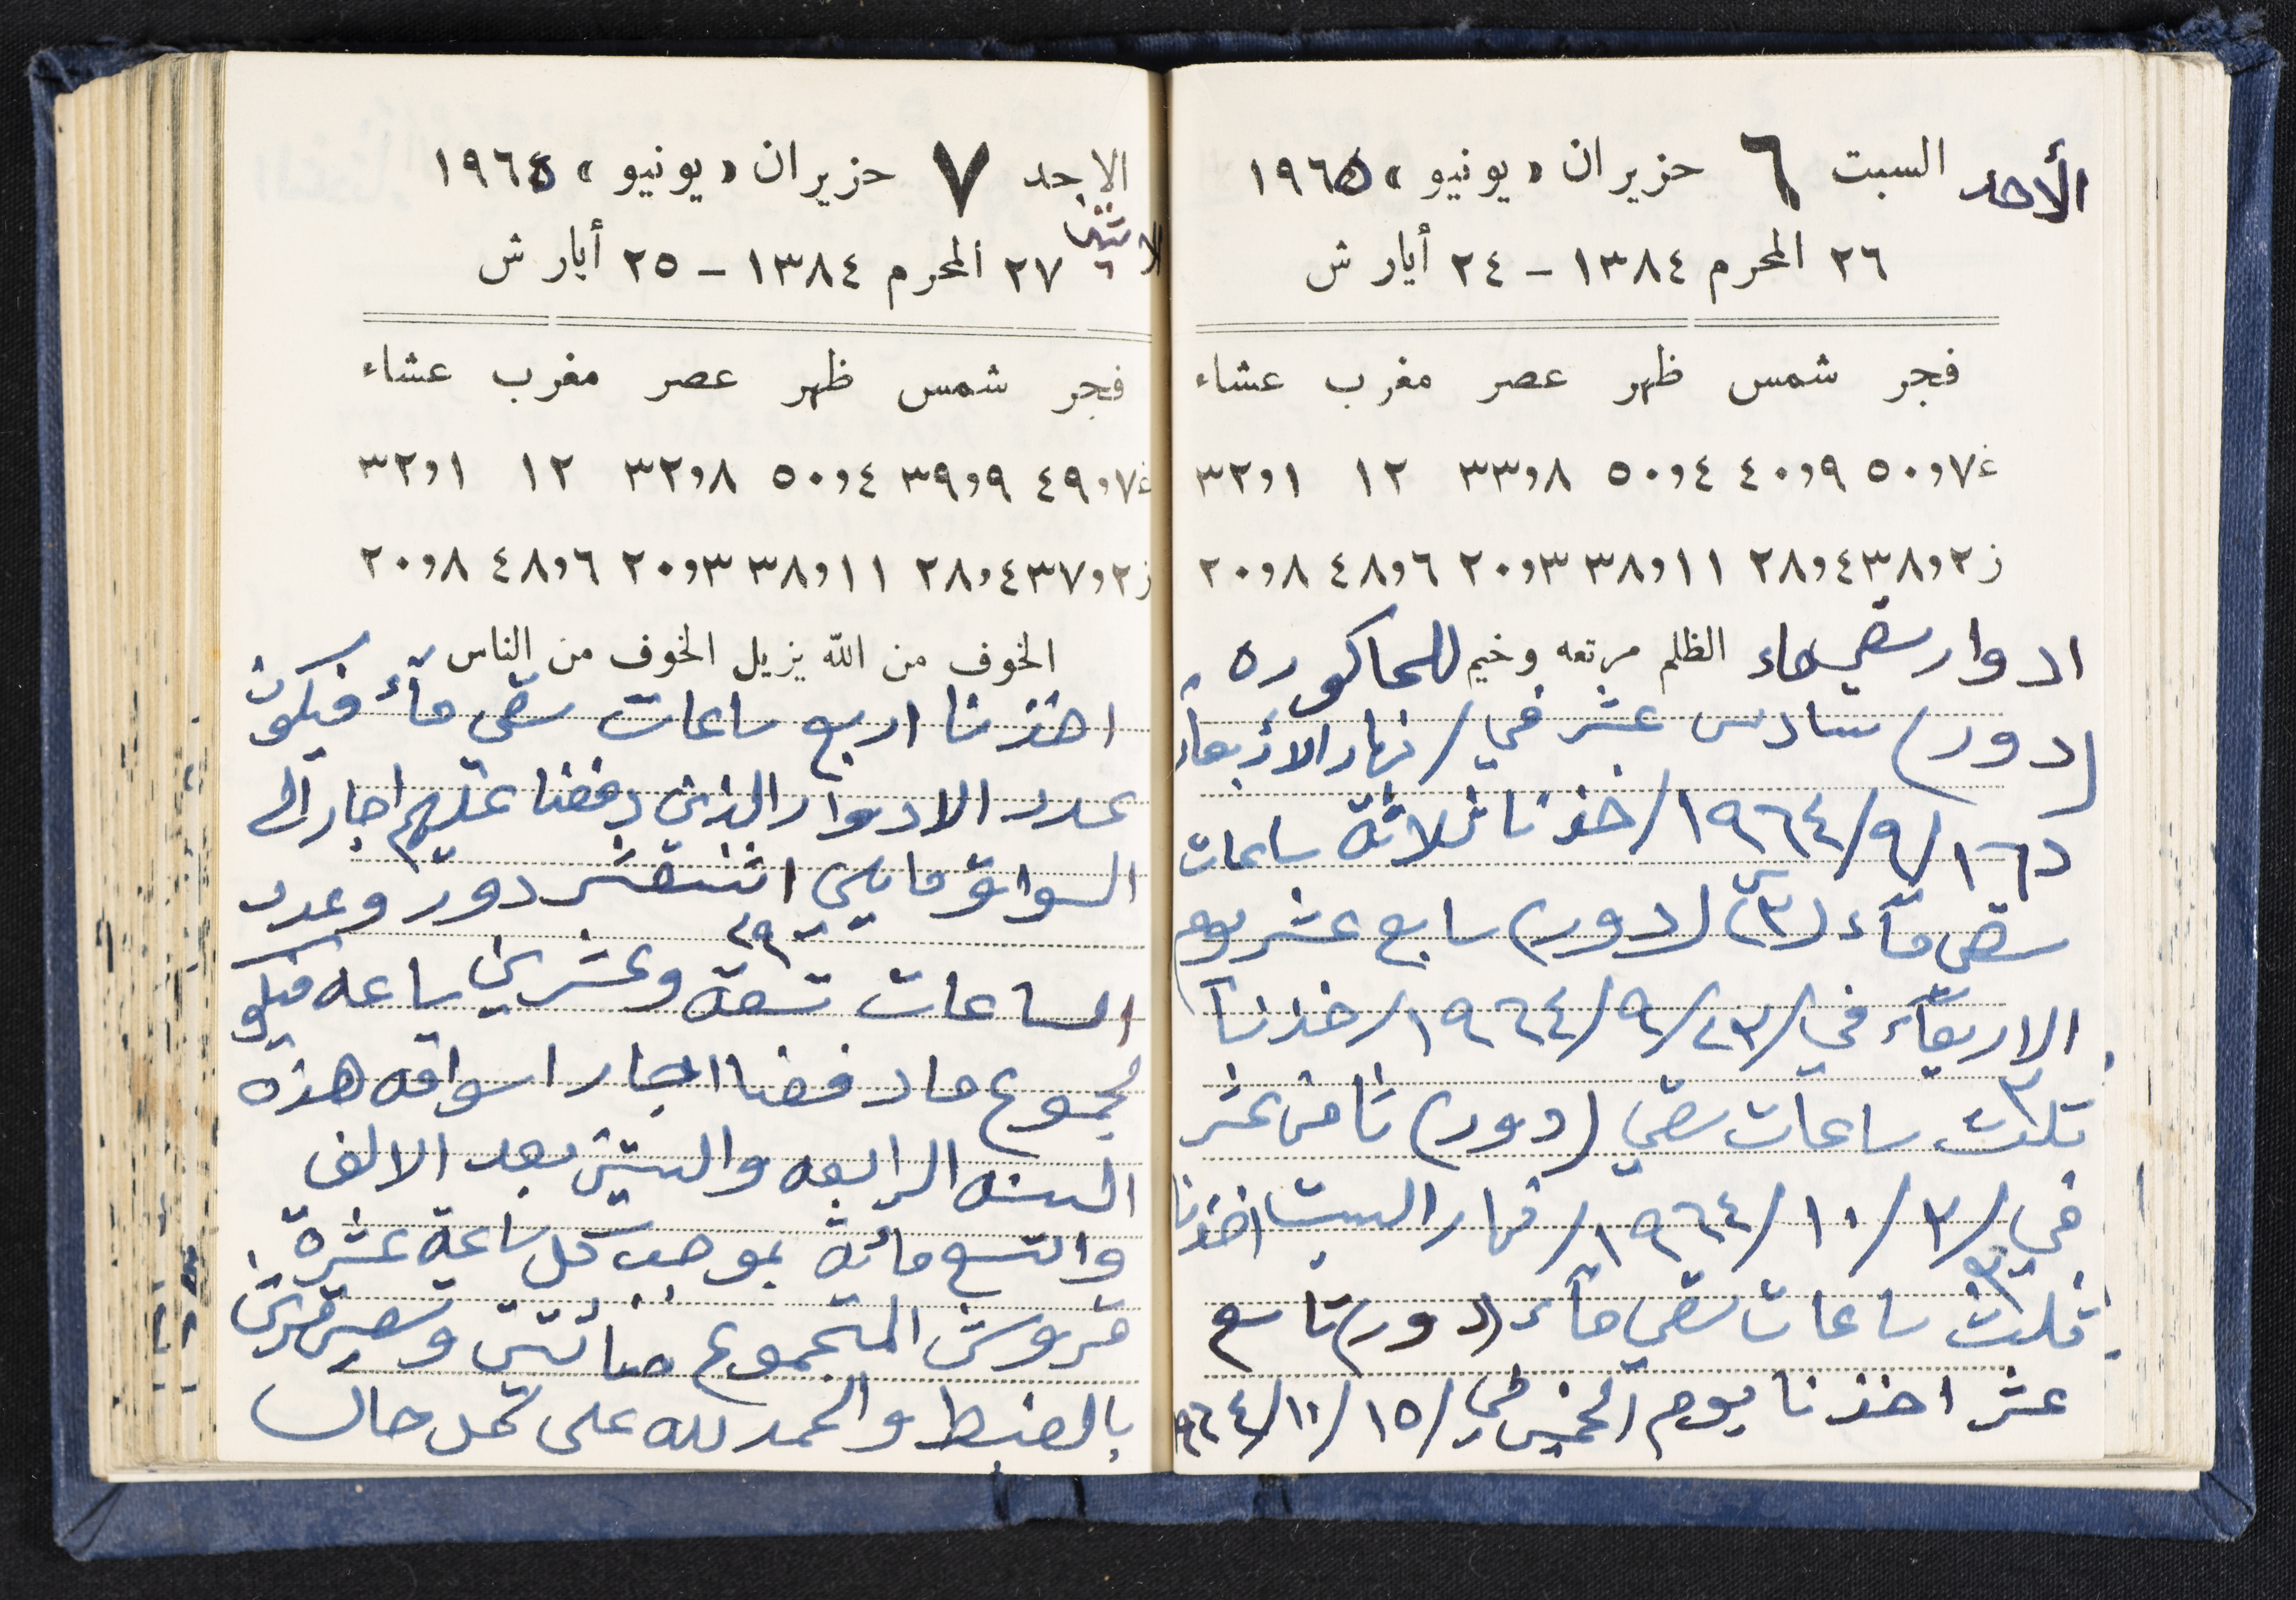 الأحد السبت ٦ حزيران «يونيو» ١٩٦٥
٢٦ المحرم ١٣٨٤ - ٢٤ أيار ش
فجر شمس ظهر عصر مغرب عشاء
غ ٧و٥٠ ٩و٤٠ ٤و٥٠ ٨و٣٣ ١٢ ١و٣٢
ز ٢و٣٨ ٤و٢٨ ١١و٣٨ ٣و٢٠ ٦و٤٨ ٨و٢٠
ادوار سقي ماء الظلم مرتعه وخيم للحاكوره
(دور) سادس عشر في/ نهار الاربعاء
د١٦/٩/١٩٦٤/خذنا ثلاثة ساعات
سقي مآء (٣) (دور) سابع عشر يوم
الاربعآء في/٢٣/٩/١٩٦٤/خذنا
٣
تلت ساعات سقي (دور) ثامن عشر
في/٣/١٠/١٩٦٤/نهار السبت اخذنا
٣
ثلت ساعات سقي مآء (دور) تاسع
عشر اخذنا يوم الخميس في/١٥/١٠/٩٦٤
الاحد ٧ حزيران «يونيو» ١٩٦٥
الاثنين
٢٧ المحرم ١٣٨٤ - ٢٥ أيار ش
فجر شمس ظهر عصر مغرب عشاء
غ ٧و٤٩ ٩و٣٩ ٤و٥٠ ٨و٣٢ ١٢ ١و٣٢
ز ٢و٣٧ ٤و٢٨ ١١و٣٨ ٣و٢٠ ٦و٤٨ ٨و٢٠
الخوف من الله يزيل الخوف من الناس
اخذنا اربع ساعات سقي مآء فيكون
عدد الادوار الذين دفعنا عليهم اجار الى
السواقة مايلي اثنعشر دور وعدد
٢٩
الساعات تسعة وعشرين ساعه فيكو
مجموع ما دفعنا اجار اسواقه هذه
السنه الرابعه والستين بعد الالف
والتسع مائة بموجب كل ساعة عشرة
قروش المجموع مائتين وتسعين قرش
بالضبط والحمد لله على كل حال